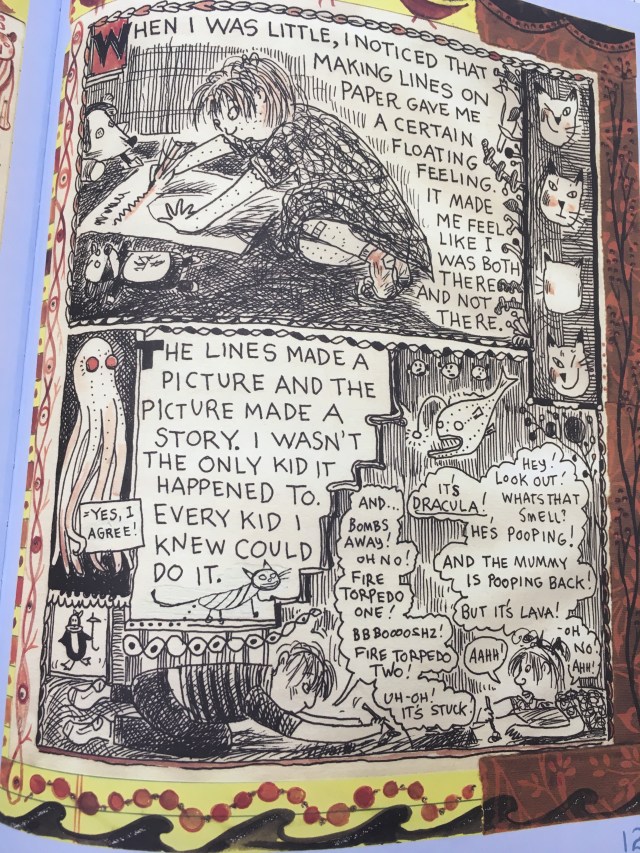 WHEN I WAS LITTLE, I NOTICED THAT
MAKING LINES ON
PAPER GAVE ME
A CERTAIN
FLOATING
FEELING.
IT MADE
ME FEEL
LIKE I
WAS BOTH
THERE
AND NOT
THERE.
THE LINES MADE A
PICTURE AND THE
PICTURE MADE A
STORY. I WASN'T
THE ONLY KID IT
HAPPENED TO.
EVERY KID I
KNEW COULD
DO IT.
=YES, I
AGREE!
AND...
BOMBS
AWAY!
OH NO!
FIRE
TORPEDO
ONE!
BBBOOOOSHZ!
FIRE TORPEDO
TWO!
UH-OH!
IT'S STUCK!
IT'S
DRACULA!
HEY!
LOOK OUT!
WHATS THAT
SMELL?
HES POOPING!
AND THE MUMMY
IS POOPING BACK!
BUT IT'S LAVA!
AAHH!
OH
NO!
AHH!